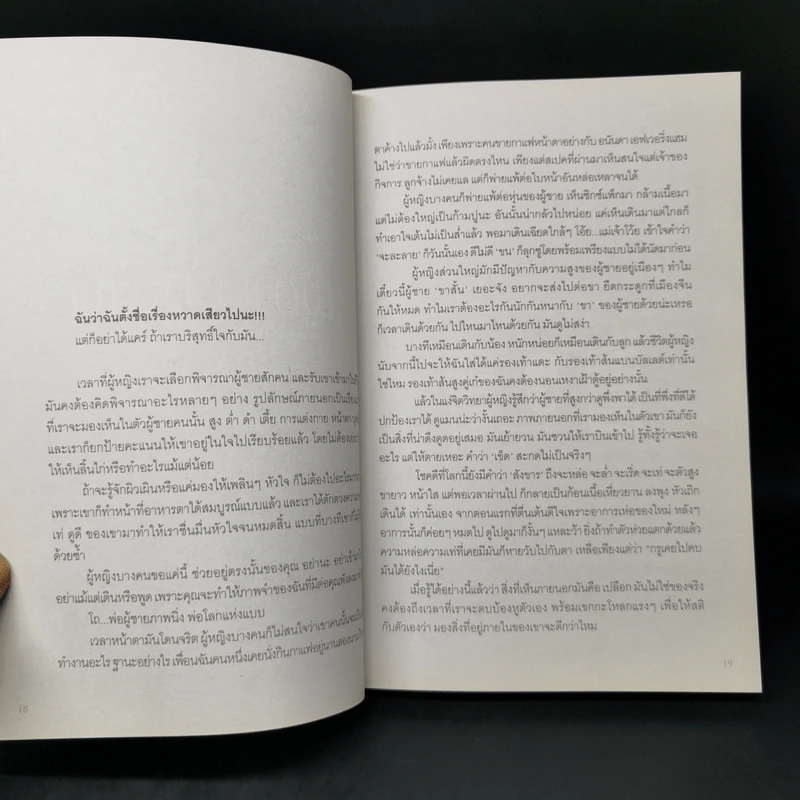 ฉันว่าฉันตั้งชื่อเรื่องหวาดเสียวไปนะ!!!
แต่ก็อย่าได้แคร์ ถ้าเราบริสุทธิ์ใจกับมัน...
เวลาที่ผู้หญิงเราจะเลือกพิจารณาผู้ชายสักคน และรับเขาเข้ามาในชี
มันคงต้องคิดพิจารณาอะไรหลายๆ อย่าง รูปลักษณ์ภายนอกเป็นเรื่อง
ที่เราจะมองเห็นในตัวผู้ชายคนนั้น สูง ต่ำ ดำ เตี้ย การแต่งกาย หน้าตา
และเราก็ยกป้ายคะแนนให้เขาอยู่ในใจไปเรียบร้อยแล้ว โดยไม่ต้อง
ให้เห็นลิ้นไก่หรือทำอะไรแม้แต่น้อย
ถ้าจะรู้จักผิวเผินหรือแค่มองให้เพลินๆ หัวใจ ก็ไม่ต้องไปอะไรมาก
เพราะเขาก็ทำหน้าที่อาหารตาได้สมบูรณ์แบบแล้ว และเราได้ตักตวงความ
เท่ ดูดี ของเขามาทำให้เราชื่นมื่นหัวใจจนหมดสิ้น แบบที่บางทีเขาก็ไม่รู้
ด้วยซ้ำ
ผู้หญิงบางคนขอแค่นี้ ช่วยอยู่ตรงนั้นของคุณ อย่านะ อย่าเข้ามา
อย่าแม้แต่เดินหรือพูด เพราะคุณจะทำให้ภาพจำของฉันที่มีต่อคุณพัง
โถ...พ่อผู้ชายภาพนิ่ง พ่อโลกแห่งแบบ
เวลาหน้าตามันโดนจริต ผู้หญิงบางคนก็ไม่สนใจว่าเขาคนนั้นจะเป็น
ทำงานอะไร ฐานะอย่างไร เพื่อนฉันคนหนึ่งเคยนั่งกินกาแฟอยู่นานสองนาน
18
ตาค้างไปแล้วมั้ง เพียงเพราะคนขายกาแฟหน้าตาอย่างกับ อนันดา เอฟเวอริ่งแฮม
ไม่ใช่ว่าขายกาแฟแล้วผิดตรงไหน เพียงแต่สเปคที่ผ่านมาเห็นสนใจแต่เจ้าของ
กิจการ ลูกจ้างไม่เคยแล แต่ก็พ่ายแพ้ต่อใบหน้าอันหล่อเหลาจนได้
ผู้หญิงบางคนก็พ่ายแพ้ต่อหุ่นของผู้ชาย เห็นซิกซ์แพ็กมา กล้ามเนื้อมา
แต่ไม่ต้องใหญ่เป็นก้ามปูนะ อันนั้นน่ากลัวไปหน่อย แค่เห็นเดินมาแต่ไกลก็
ทำเอาใจเต้นไม่เป็นส่ำแล้ว พอมาเดินเฉียดใกล้ๆ โอ้ย...แม่เจ้าโว้ย เข้าใจคำว่า
'จะละลาย' ก็วันนั้นเอง ดีไม่ดี 'ขน' ก็ลุกชูโดยพร้อมเพรียงแบบไม่ได้นัดมาก่อน
ผู้หญิงส่วนใหญ่มักมีปัญหากับความสูงของผู้ชายอยู่เนืองๆ ทำไม
เดี๋ยวนี้ผู้ชาย 'ขาสั้น' เยอะจัง อยากจะส่งไปต่อขา ยืดกระดูกที่เมืองจีน
กันให้หมด ทำไมเราต้องอะไรกันนักกันหนากับ 'ขา' ของผู้ชายด้วยน่ะเหรอ
ก็เวลาเดินด้วยกัน ไปไหนมาไหนด้วยกัน มันดูไม่สง่า
บางทีเหมือนเดินกับน้อง หนักหน่อยก็เหมือนเดินกับลูก แล้วชีวิตผู้หญิง
นับจากนี้ไปจะให้ฉันใส่ได้แค่รองเท้าแตะ กับรองเท้าส้นแบนบัลเลต์เท่านั้น
ใช่ไหม รองเท้าส้นสูงคู่เก่งของฉันคงต้องนอนเหงาเฝ้าตู้อยู่อย่างนั้น
แล้วในแง่จิตวิทยาผู้หญิงรู้สึกว่าผู้ชายที่สูงกว่าดูพึ่งพาได้ เป็นที่พึ่งที่ดีได้
ปกป้องเราได้ ดูแมนน่ะว่างั้นเถอะ ภาพภายนอกที่เรามองเห็นในตัวเขา มันก็ยัง
เป็นสิ่งที่น่าดึงดูดอยู่เสมอ มันเย้ายวน มันชวนให้เราบินเข้าไป รู้ทั้งรู้ว่าจะเจอ
อะไร แต่ให้ตายเหอะ คำว่า 'เข็ด' สะกดไม่เป็นจริงๆ
โชคดีที่โลกนี้ยังมีคำว่า 'สังขาร' ถึงจะหล่อ จะล่ำ จะเริ่ด จะเท่ จะตัวสูง
ขายาว หน้าใส แต่พอเวลาผ่านไป ก็กลายเป็นก้อนเนื้อเหี่ยวยาน ลงพุง หัวเถิก
เดินได้ เท่านั้นเอง จากตอนแรกที่ตื่นเต้นดีใจเพราะอาการเห่อของใหม่ หลังๆ
อาการนั้นก็ค่อยๆ หมดไป ดูไปดูมาก็งั้นๆ แหละว้า ยิ่งถ้าทำตัวห่วยแตกด้วยแล้ว
ความหล่อความเท่ที่เคยมีมันก็หายวับไปกับตา เหลือเพียงแต่ว่า "กรูเคยไปคบ
มันได้ยังไงเนี่ย"
เมื่อรู้ได้อย่างนี้แล้วว่า สิ่งที่เห็นภายนอกมันคือ เปลือก มันไม่ใช่ของจริง
คงต้องถึงเวลาที่เราจะตบบ้องหูตัวเอง พร้อมเขกกะโหลกแรงๆ เพื่อให้สติ
กับตัวเองว่า มองสิ่งที่อยู่ภายในของเขาจะดีกว่าไหม
19